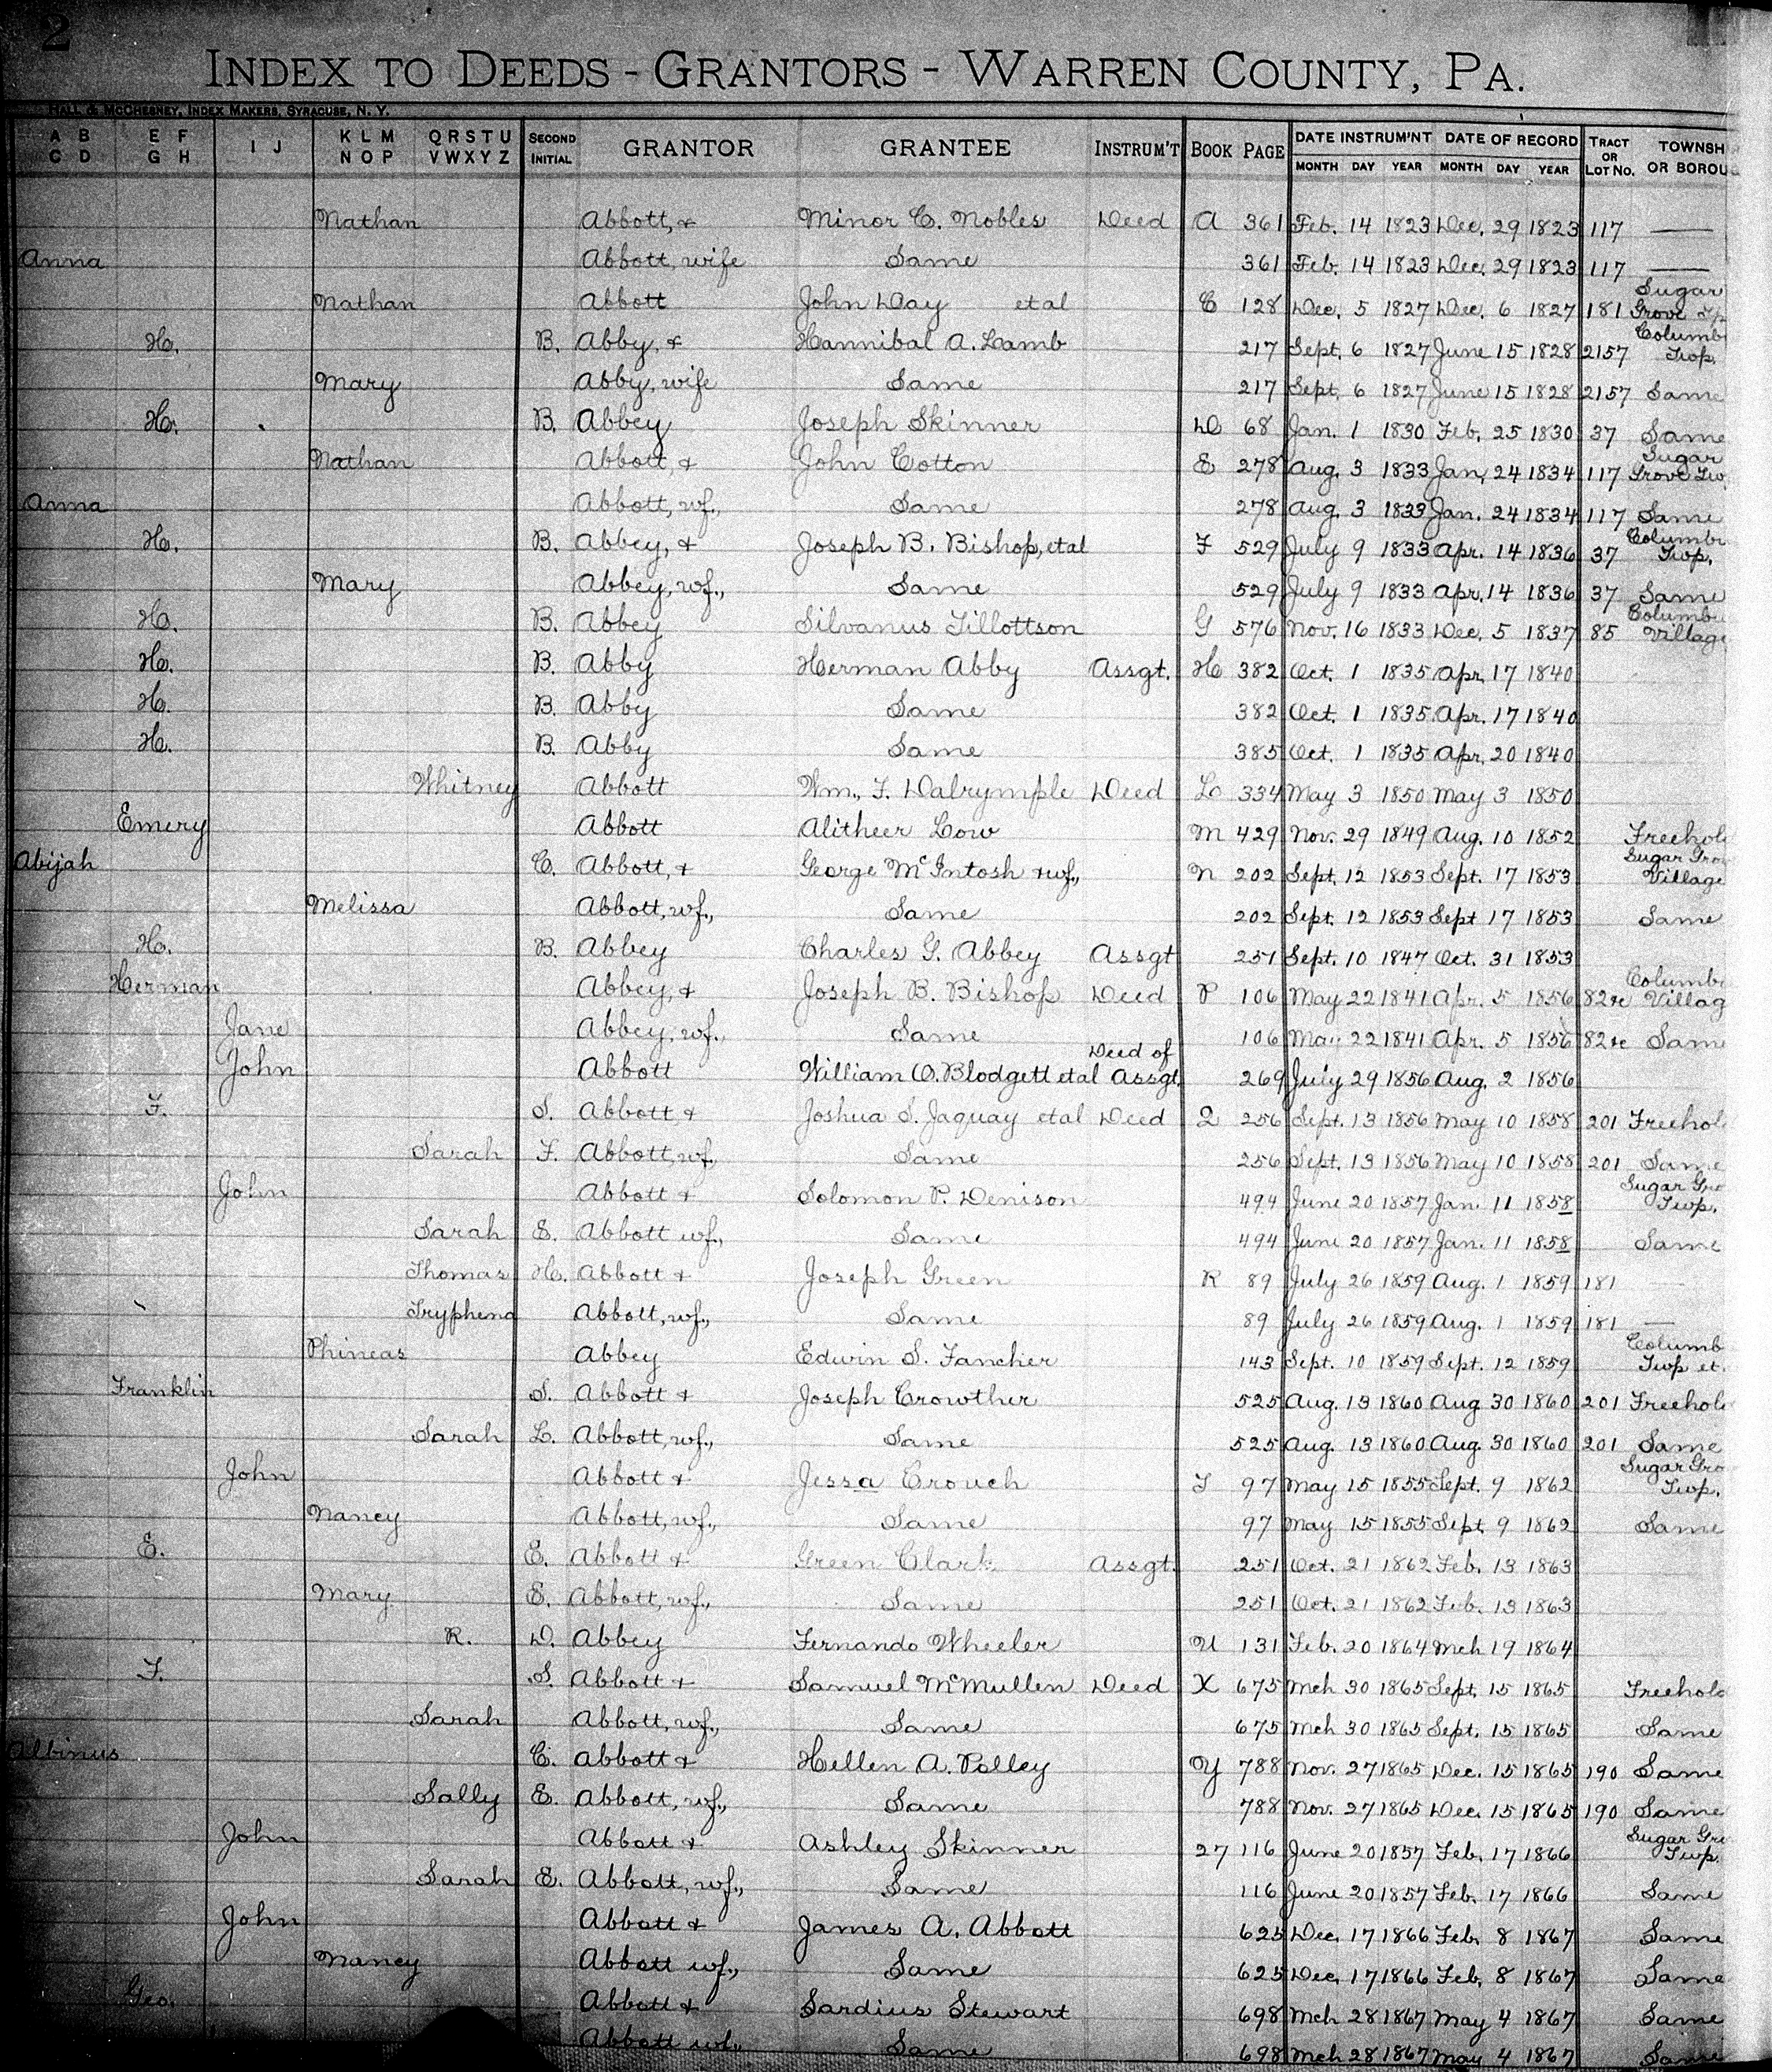 2
INDEX TO DEEDS - GRANTORS - WARREN COUNTY, PA.
HALL & McCHESNEY, INDEX MAKERS, SYRACUSE, N. Y.
A B C D E F G H I J K L M N O P Q R S T U V W X Y Z SECOND INITIAL GRANTOR GRANTEE INSTRUM'T BOOK PAGE DATE INSTRUM'NT MONTH DAY YEAR DATE OF RECORD MONTH DAY YEAR TRACT OR LOT No. TOWNSH OR BOROU
Nathan Abbott, & Minor C. Nobles Deed A 361 Feb. 14 1823 Dec. 29 1823 117 —
Anna Abbott, wife Same 361 Feb. 14 1823 Dec. 29 1823 117 —
Nathan Abbott John Day etal C 128 Dec. 5 1827 Dec. 6 1827 181 Sugar Grove Tp
H. B. Abby, & Hannibal A. Lamb 217 Sept. 6 1827 June 15 1828 2157 Columb Twp.
Mary Abby, wife Same 217 Sept. 6 1827 June 15 1828 2157 Same
H. B. Abbey Joseph Skinner D 68 Jan. 1 1830 Feb. 25 1830 37 Same
Nathan Abbott, & John Cotton E 278 Aug. 3 1833 Jan. 24 1834 117 Sugar Grove Tw.
Anna Abbott, wf., Same 278 Aug. 3 1833 Jan. 24 1834 117 Same
H. B. Abbey, & Joseph B. Bishop, etal F 529 July 9 1833 Apr. 14 1836 37 Columb Twp.
Mary Abbey, wf., Same 529 July 9 1833 Apr. 14 1836 37 Same
H. B. Abbey Silvanus Tillottson G 576 Nov. 16 1833 Dec. 5 1837 85 Columbu Village
H. B. Abby Herman Abby Assgt. H 382 Oct. 1 1835 Apr. 17 1840
H. B. Abby Same 382 Oct. 1 1835 Apr. 17 1840
H. B. Abby Same 385 Oct. 1 1835 Apr. 20 1840
Whitney Abbott Wm. F. Dalrymple Deed L 334 May 3 1850 May 3 1850
Emery Abbott Alitheer Low M 429 Nov. 29 1849 Aug. 10 1852 Freehol
Abijah C. Abbott, & George McIntosh & wf., N 202 Sept. 12 1853 Sept. 17 1853 Sugar Gro Village
Melissa Abbott, wf., Same 202 Sept. 12 1853 Sept 17 1853 Same
H. B. Abbey Charles G. Abbey Assgt 251 Sept. 10 1847 Oct. 31 1853
Herman Abbey, & Joseph B. Bishop Deed P 106 May 22 1841 Apr. 5 1856 82&c Columb Villag
Jane Abbey, wf., Same 106 May 22 1841 Apr. 5 1856 82&c Same
John Abbott William O. Blodgett etal Deed of Assgt. 269 July 29 1856 Aug. 2 1856
F. S. Abbott & Joshua S. Jaquay etal Deed Q 256 Sept. 13 1856 May 10 1858 201 Freehol
Sarah F. Abbott, wf., Same 256 Sept. 13 1856 May 10 1858 201 Same
John Abbott & Solomon P. Denison 494 June 20 1857 Jan. 11 1858 Sugar Gro Twp.
Sarah E. Abbott wf., Same 494 June 20 1857 Jan. 11 1858 Same
Thomas H. Abbott & Joseph Green R 89 July 26 1859 Aug. 1 1859 181 —
Tryphena Abbott, wf., Same 89 July 26 1859 Aug. 1 1859 181 —
Phineas Abbey Edwin S. Fancher 143 Sept. 10 1859 Sept. 12 1859 Columb Twp et.
Franklin S. Abbott & Joseph Crowther 525 Aug. 13 1860 Aug 30 1860 201 Freehol
Sarah L. Abbott, wf., Same 525 Aug. 13 1860 Aug. 30 1860 201 Same
John Abbott & Jessa Crouch T 97 May 15 1855 Sept. 9 1862 Sugar Gro Twp.
Nancy Abbott, wf., Same 97 May 15 1855 Sept 9 1862 Same
E. E. Abbott & Green Clark Assgt. 251 Oct. 21 1862 Feb. 13 1863
Mary E. Abbott, wf., Same 251 Oct. 21 1862 Feb. 13 1863
R. D. Abbey Fernando Wheeler U 131 Feb. 20 1864 Mch 19 1864
F. S. Abbott & Samuel McMullen Deed X 675 Mch 30 1865 Sept. 15 1865 Freehold
Sarah Abbott, wf., Same 675 Mch 30 1865 Sept. 15 1865 Same
Albinus C. Abbott & Hellen A. Polley Y 788 Nov. 27 1865 Dec. 15 1865 190 Same
Sally E. Abbott, wf., Same 788 Nov. 27 1865 Dec. 15 1865 190 Same
John Abbott & Ashley Skinner 27 116 June 20 1857 Feb. 17 1866 Sugar Gro Twp.
Sarah E. Abbott, wf., Same 116 June 20 1857 Feb. 17 1866 Same
John Abbott & James A. Abbott 625 Dec. 17 1866 Feb. 8 1867 Same
Nancy Abbott wf., Same 625 Dec. 17 1866 Feb. 8 1867 Same
Geo. Abbott & Sardius Stewart 698 Mch 28 1867 May 4 1867 Same
Abbott wf., Same 698 Mch 28 1867 May 4 1867 Same